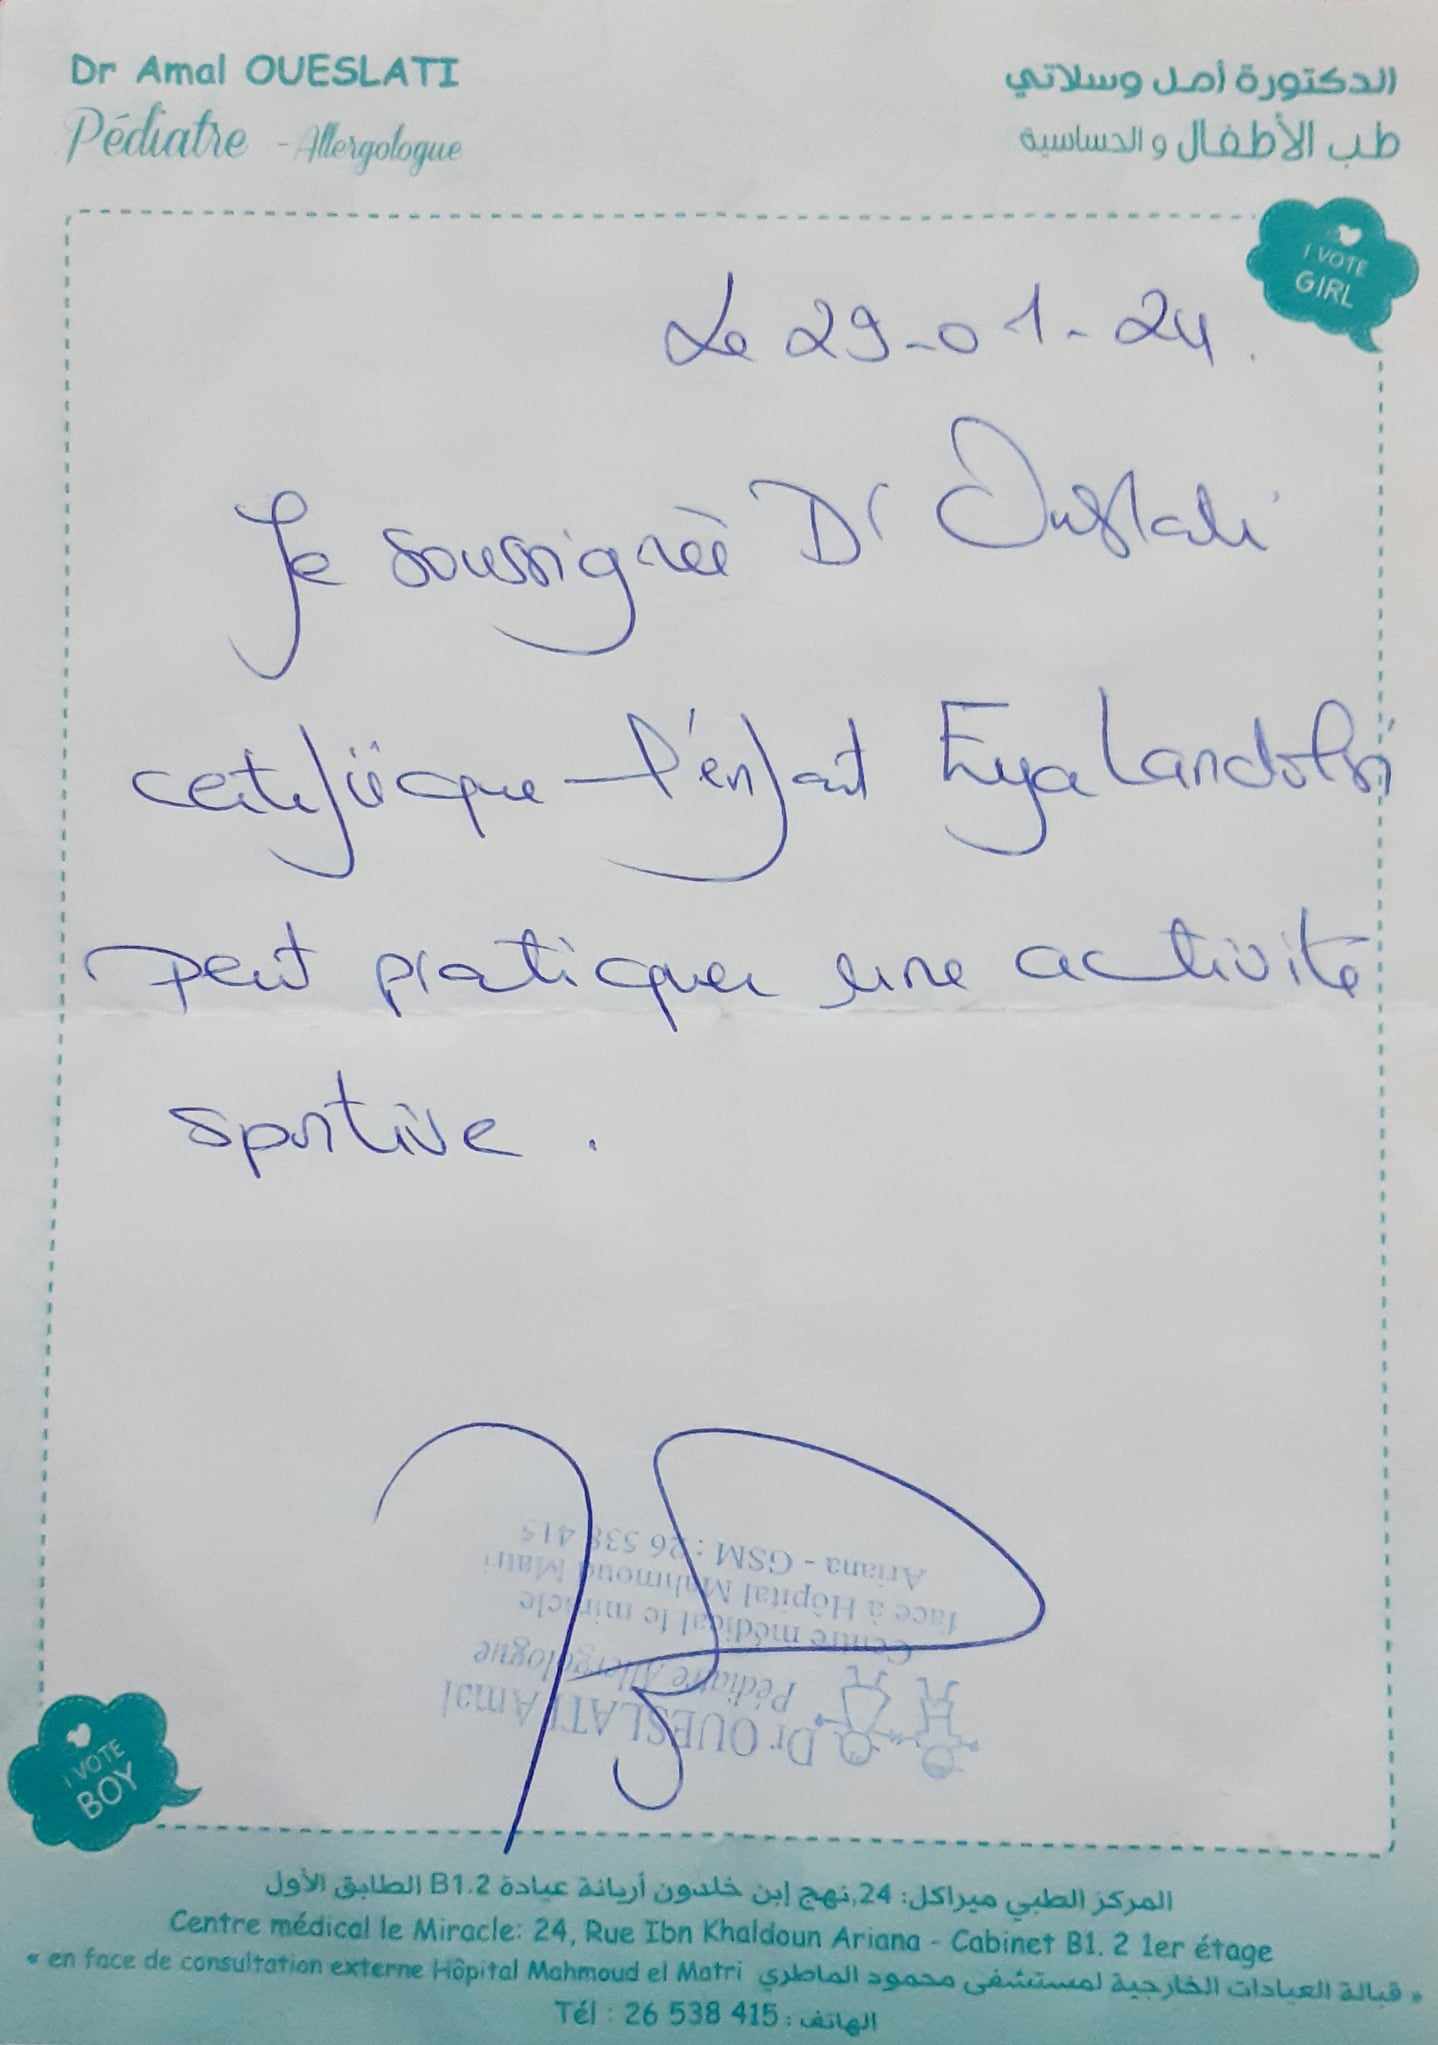 Dr Amal OUESLATI
Pédiatre - Allergologue
الدكتورة أمل وسلاتي
طب الأطفال و الحساسية
I VOTE
GIRL
Le 29-01-24.
Je soussignée Dr Oueslati
certifie que l'enfant Eya Landolsi
peut pratiquer une activité
sportive.
Dr OUESLATI Amal
Pédiatre Allergologue
Centre médical le miracle
face à Hôpital Mahmoud Matri
Ariana - GSM : 26 538 415
I VOTE
BOY
المركز الطبي ميراكل: 24,نهج إبن خلدون أريانة عيادة B1.2 الطابق الأول
Centre médical le Miracle: 24, Rue Ibn Khaldoun Ariana - Cabinet B1. 2 1er étage
« en face de consultation externe Hôpital Mahmoud el Matri قبالة العيادات الخارجية لمستشفى محمود الماطري »
Tél : 26 538 415 : الهاتف